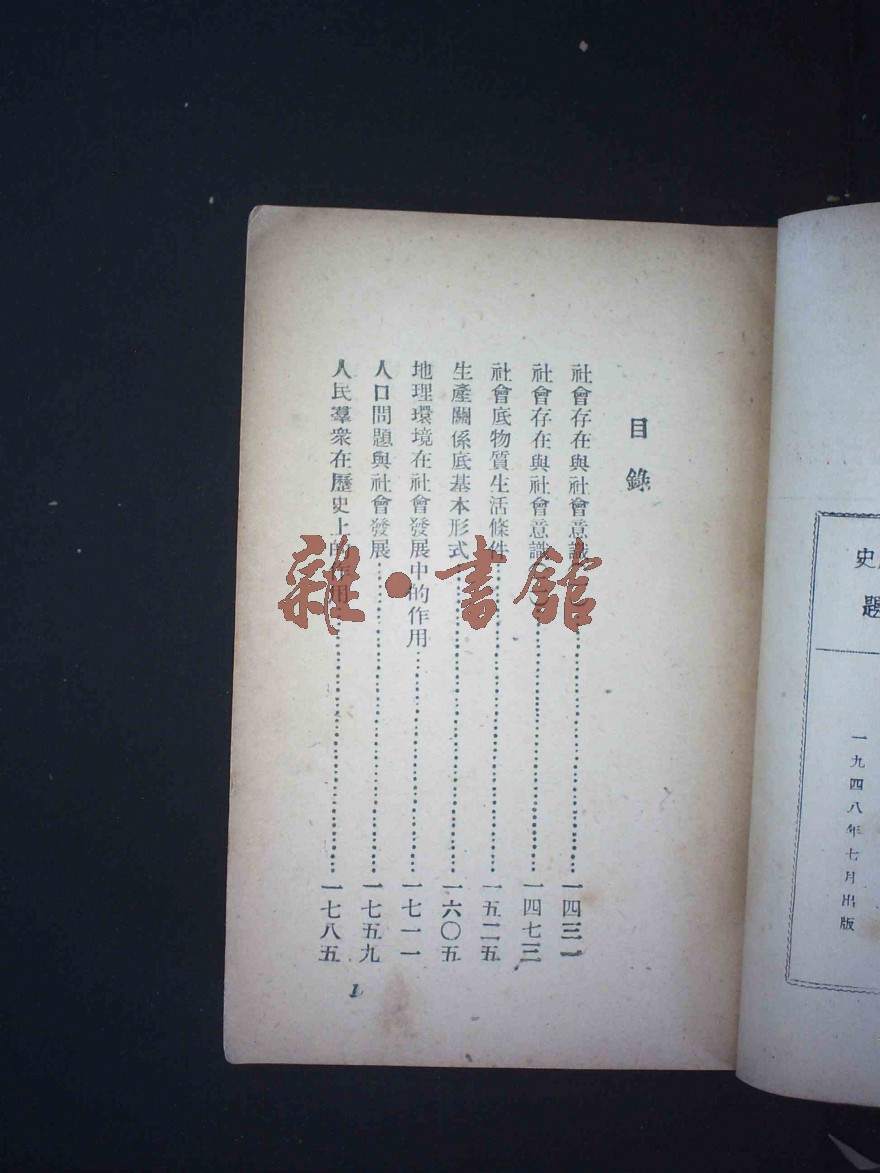 史
題
一九四八年七月出版
目錄
社會存在與社會意識……一四三一
社會存在與社會意識……一四七三
社會底物質生活條件……一五二五
生產關係底基本形式……一六〇五
地理環境在社會發展中的作用……一七一一
人口問題與社會發展……一七五九
人民羣衆在歷史上的作用……一七八五
1
雜·書館